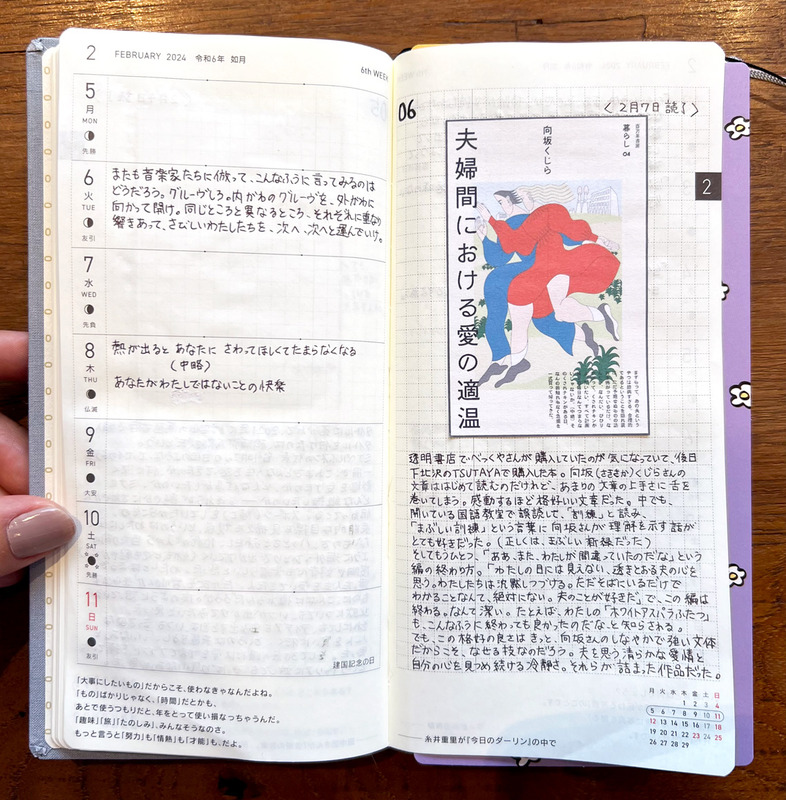 2 FEBRUARY 2024 令和6年 如月
6th WEEK
5
月
MON
先勝
6
火
TUE
友引
またも音楽家たちに倣って、こんなふうに言ってみるのは
どうだろう。グルーヴしろ。内がわのグルーヴを、外がわに
向かって開け。同じところと異なるところ、それぞれに重なり
響きあって、さびしいわたしたちを、次へ、次へと運んでいけ。
7
水
WED
先負
8
木
THU
仏滅
熱が出ると あなたに さわってほしくてたまらなくなる
(中略)
あなたがわたしではないことの快楽
9
金
FRI
大安
10
土
SAT
先勝
11
日
SUN
友引
建国記念の日
「大事にしたいもの」だからこそ、使わなきゃなんだよね。
「もの」ばかりじゃなく、「時間」だとかも、
あとで使うつもりだと、年をとって使い損なっちゃうんだ。
「趣味」「旅」「たのしみ」、みんなそうなのさ。
もっと言うと「努力」も「情熱」も「才能」も、だよ。
06
〈2月7日 読了〉
暮らし 04
向坂くじら
夫婦間における愛の適温
2
透明書店でべっくやさんが購入していたのが気になっていて、後日
下北沢のTSUTAYAで購入した本。向坂(さきさか)くじらさんの
文章ははじめて読むのだけれど、あまりの文章の上手さに舌を
巻いてしまう。感動するほど格好いい文章だった。中でも、
開いている国語教室で誤読して、「訓練」と読み、
「まぶしい訓練」という言葉に向坂さんが理解を示す話が
とても好きだった。(正しくは、まぶしい新緑だった)
そしてもうひとつ、「ああ、また、わたしが間違っていたのだな」という
編の終わり方。「わたしの目には見えない、透きとおる夫の心を
思う。わたしたちは沈黙しつづける。ただそばにいるだけで
わかることなんて、絶対にない。夫のことが好きだ」で、この編は
終わる。なんて潔い。たとえば、わたしの「ホワイトアスパラふたつ」
も、こんなふうに終わっても良かったのだな、と知らされる。
でも、この格好の良さはきっと、向坂さんのしなやかで強い文体
だからこそ、なせる技なのだろう。夫を思う清らかな愛情と
自分の心を見つめ続ける冷静さ。それらが詰まった作品だった。
糸井重里が『今日のダーリン』の中で
月 火 水 木 金 土 日
1 2 3 4
5 6 7 8 9 10 11
12 13 14 15 16 17 18
19 20 21 22 23 24 25
26 27 28 29